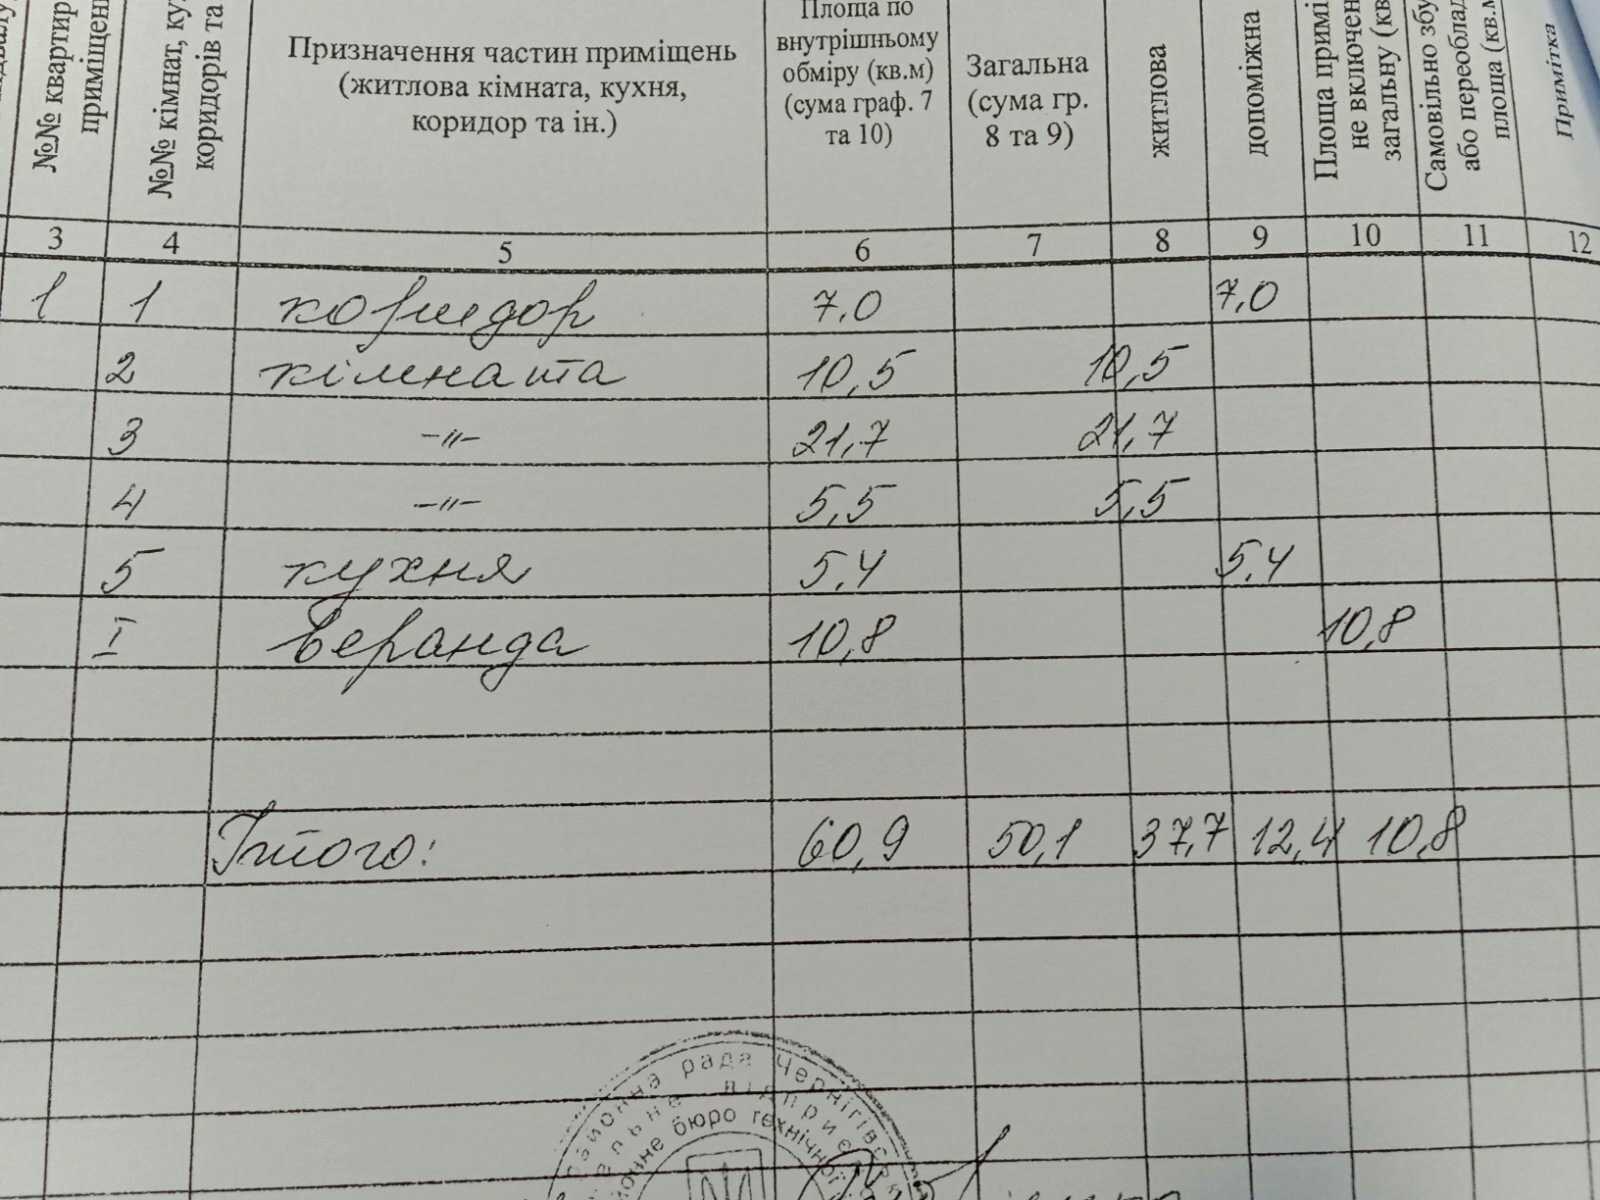 №№ квартир
приміщен
№№ кімнат, ку
коридорів та
Призначення частин приміщень
(житлова кімната, кухня,
коридор та ін.)
Площа по
внутрішньому
обміру (кв.м)
(сума граф. 7
та 10)
Загальна
(сума гр.
8 та 9)
житлова
допоміжна
Площа примі
не включен
загальну (кв
Самовільно збу
або переоблад
площа (кв.м
Примітка
3 4 5 6 7 8 9 10 11 12
1 1 коридор 7,0 7,0
2 кімната 10,5 10,5
3 -"- 21,7 21,7
4 -"- 5,5 5,5
5 кухня 5,4 5,4
I веранда 10,8 10,8
Ітого: 60,9 50,1 37,7 12,4 10,8
районна рада Чернігівс
альне підприє
йонне бюро технічної